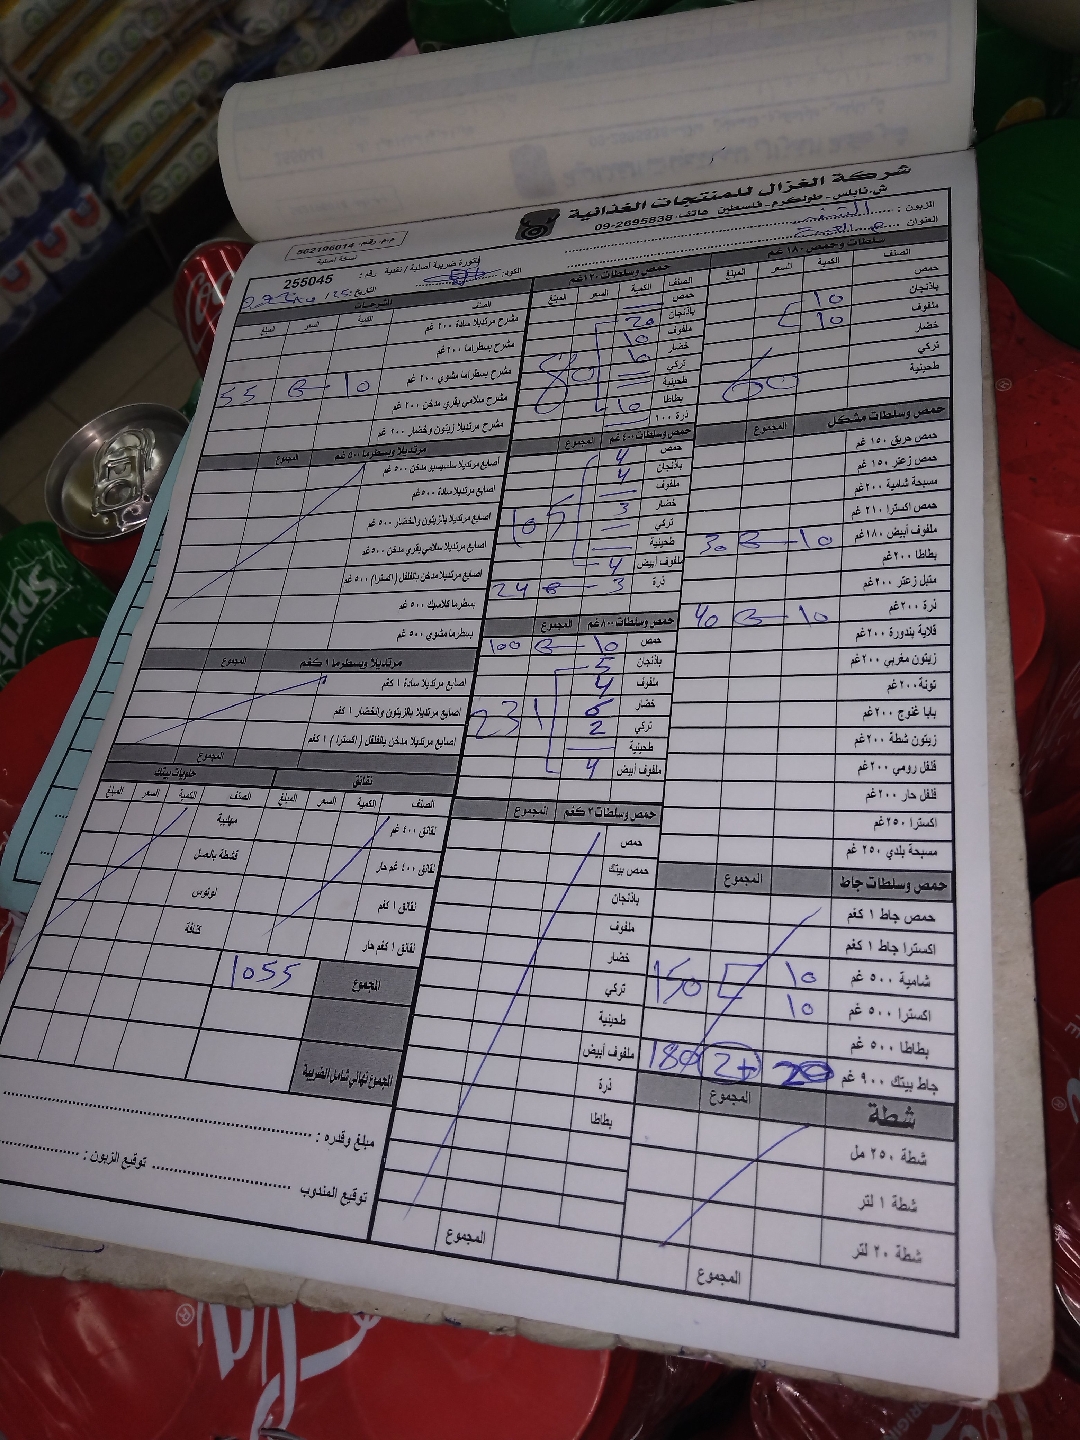 شركة الغزال للمنتجات الغذائية
ش.نابلس - طولكرم - فلسطين هاتف: 2695838-09
م.م. رقم: 562196014
نسخة أصلية
فاتورة ضريبة أصلية / نقدية رقم: 255045
الزبون:
العنوان:
الكود:
التاريخ:
سلطات وحمص ١٨٠ غم
الصنف الكمية السعر المبلغ
حمص
باذنجان 10
ملفوف 10
خضار
تركي 60
طحينية
حمص وسلطات مشكل المجموع
حمص حريق ١٥٠ غم
حمص زعتر ١٥٠ غم
مسبحة شامية ٢٠٠ غم
حمص اكسترا ٢١٠ غم
ملفوف أبيض ١٨٠ غم 10 3 30
بطاطا ٢٠٠ غم
متبل زعتر ٢٠٠ غم
ذرة ٢٠٠ غم 10 40
قلاية بندورة ٢٠٠ غم
زيتون مغربي ٢٠٠ غم
تونة ٢٠٠ غم
بابا غنوج ٢٠٠ غم
زيتون شطة ٢٠٠ غم
فلفل رومي ٢٠٠ غم
فلفل حار ٢٠٠ غم
اكسترا ٢٥٠ غم
مسبحة بلدي ٢٥٠ غم
حمص وسلطات جاط المجموع
حمص جاط ١ كغم
اكسترا جاط ١ كغم
شامية ٥٠٠ غم 10 150
اكسترا ٥٠٠ غم 10
بطاطا ٥٠٠ غم
جاط بيتك ٩٠٠ غم 20 2+ 180
شطة المجموع
شطة ٢٥٠ مل
شطة ١ لتر
شطة ٢٠ لتر
المجموع
حمص وسلطات ١٢٠ غم
الصنف الكمية السعر المبلغ
حمص
باذنجان 20
ملفوف 10
خضار 10
تركي 80
طحينية
بطاطا 10
ذرة ١٠٠
حمص وسلطات ٤٠٠ غم المجموع
حمص 4
باذنجان 4
ملفوف
خضار 3
تركي 105
طحينية
ملفوف أبيض 4
ذرة 3 8 24
حمص وسلطات ٨٠٠ غم المجموع
حمص 10 100
باذنجان 5
ملفوف 4
خضار 6
تركي 2 231
طحينية
ملفوف أبيض 4
حمص وسلطات ٣ كغم المجموع
حمص
حمص بيتك
باذنجان
ملفوف
خضار
تركي
طحينية
ملفوف أبيض
ذرة
بطاطا
المجموع
الشرحات
الصنف الكمية السعر المبلغ
مشرح مرتديلا سادة ٢٠٠ غم
مشرح بسطراما ٢٠٠ غم
مشرح بسطراما مشوي ٢٠٠ غم 10 55
مشرح سلامي بقري مدخن ٢٠٠ غم
مشرح مرتديلا زيتون وخضار ٢٠٠ غم
مرتديلا وبسطرما ٥٠٠ غم المجموع
اصابع مرتديلا سادة ٥٠٠ غم
اصابع مرتديلا بالزيتون والخضار ٥٠٠ غم
اصابع مرتديلا سلامي بقري مدخن ٥٠٠ غم
اصابع مرتديلا مدخن بالفلفل (اكسترا) ٥٠٠ غم
بسطرما كلاسيك ٥٠٠ غم
بسطرما مشوي ٥٠٠ غم
مرتديلا وبسطرما ١ كغم المجموع
اصابع مرتديلا سادة ١ كغم
اصابع مرتديلا بالزيتون والخضار ١ كغم
اصابع مرتديلا مدخن بالفلفل (اكسترا) ١ كغم
المجموع
نقانق حلويات بيتك
الصنف الكمية السعر المبلغ الصنف الكمية السعر المبلغ
نقانق ٤٠٠ غم مهلبية
نقانق ٤٠٠ غم حار قشطة بالعسل
نقانق ١ كغم لوتوس
نقانق ١ كغم حار كنافة
المجموع 1055
المجموع نهائي شامل الضريبة
مبلغ وقدره:
توقيع المندوب توقيع الزبون:
Sprite